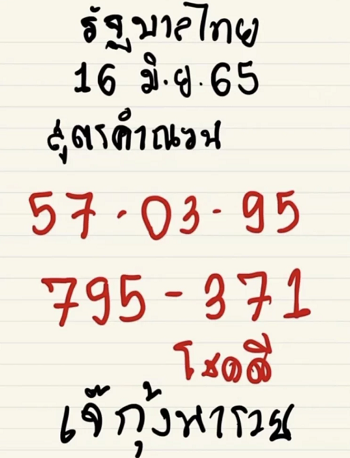 รัฐบาลไทย
16 มิ.ย.65
สูตรคำนวน
57-03-95
795-371
โชคดี
เจ๊กุ้งพารวย